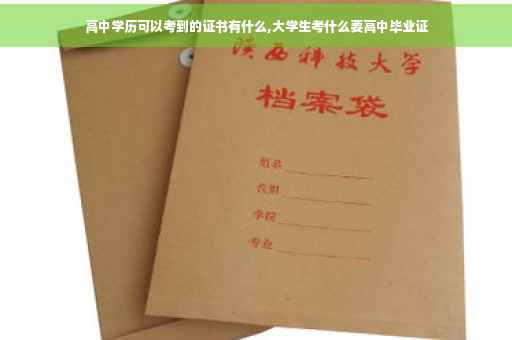 高中学历可以考到的证书有什么,大学生考什么要高中毕业证
陕西科技大学
档案袋
姓名
学院
专业